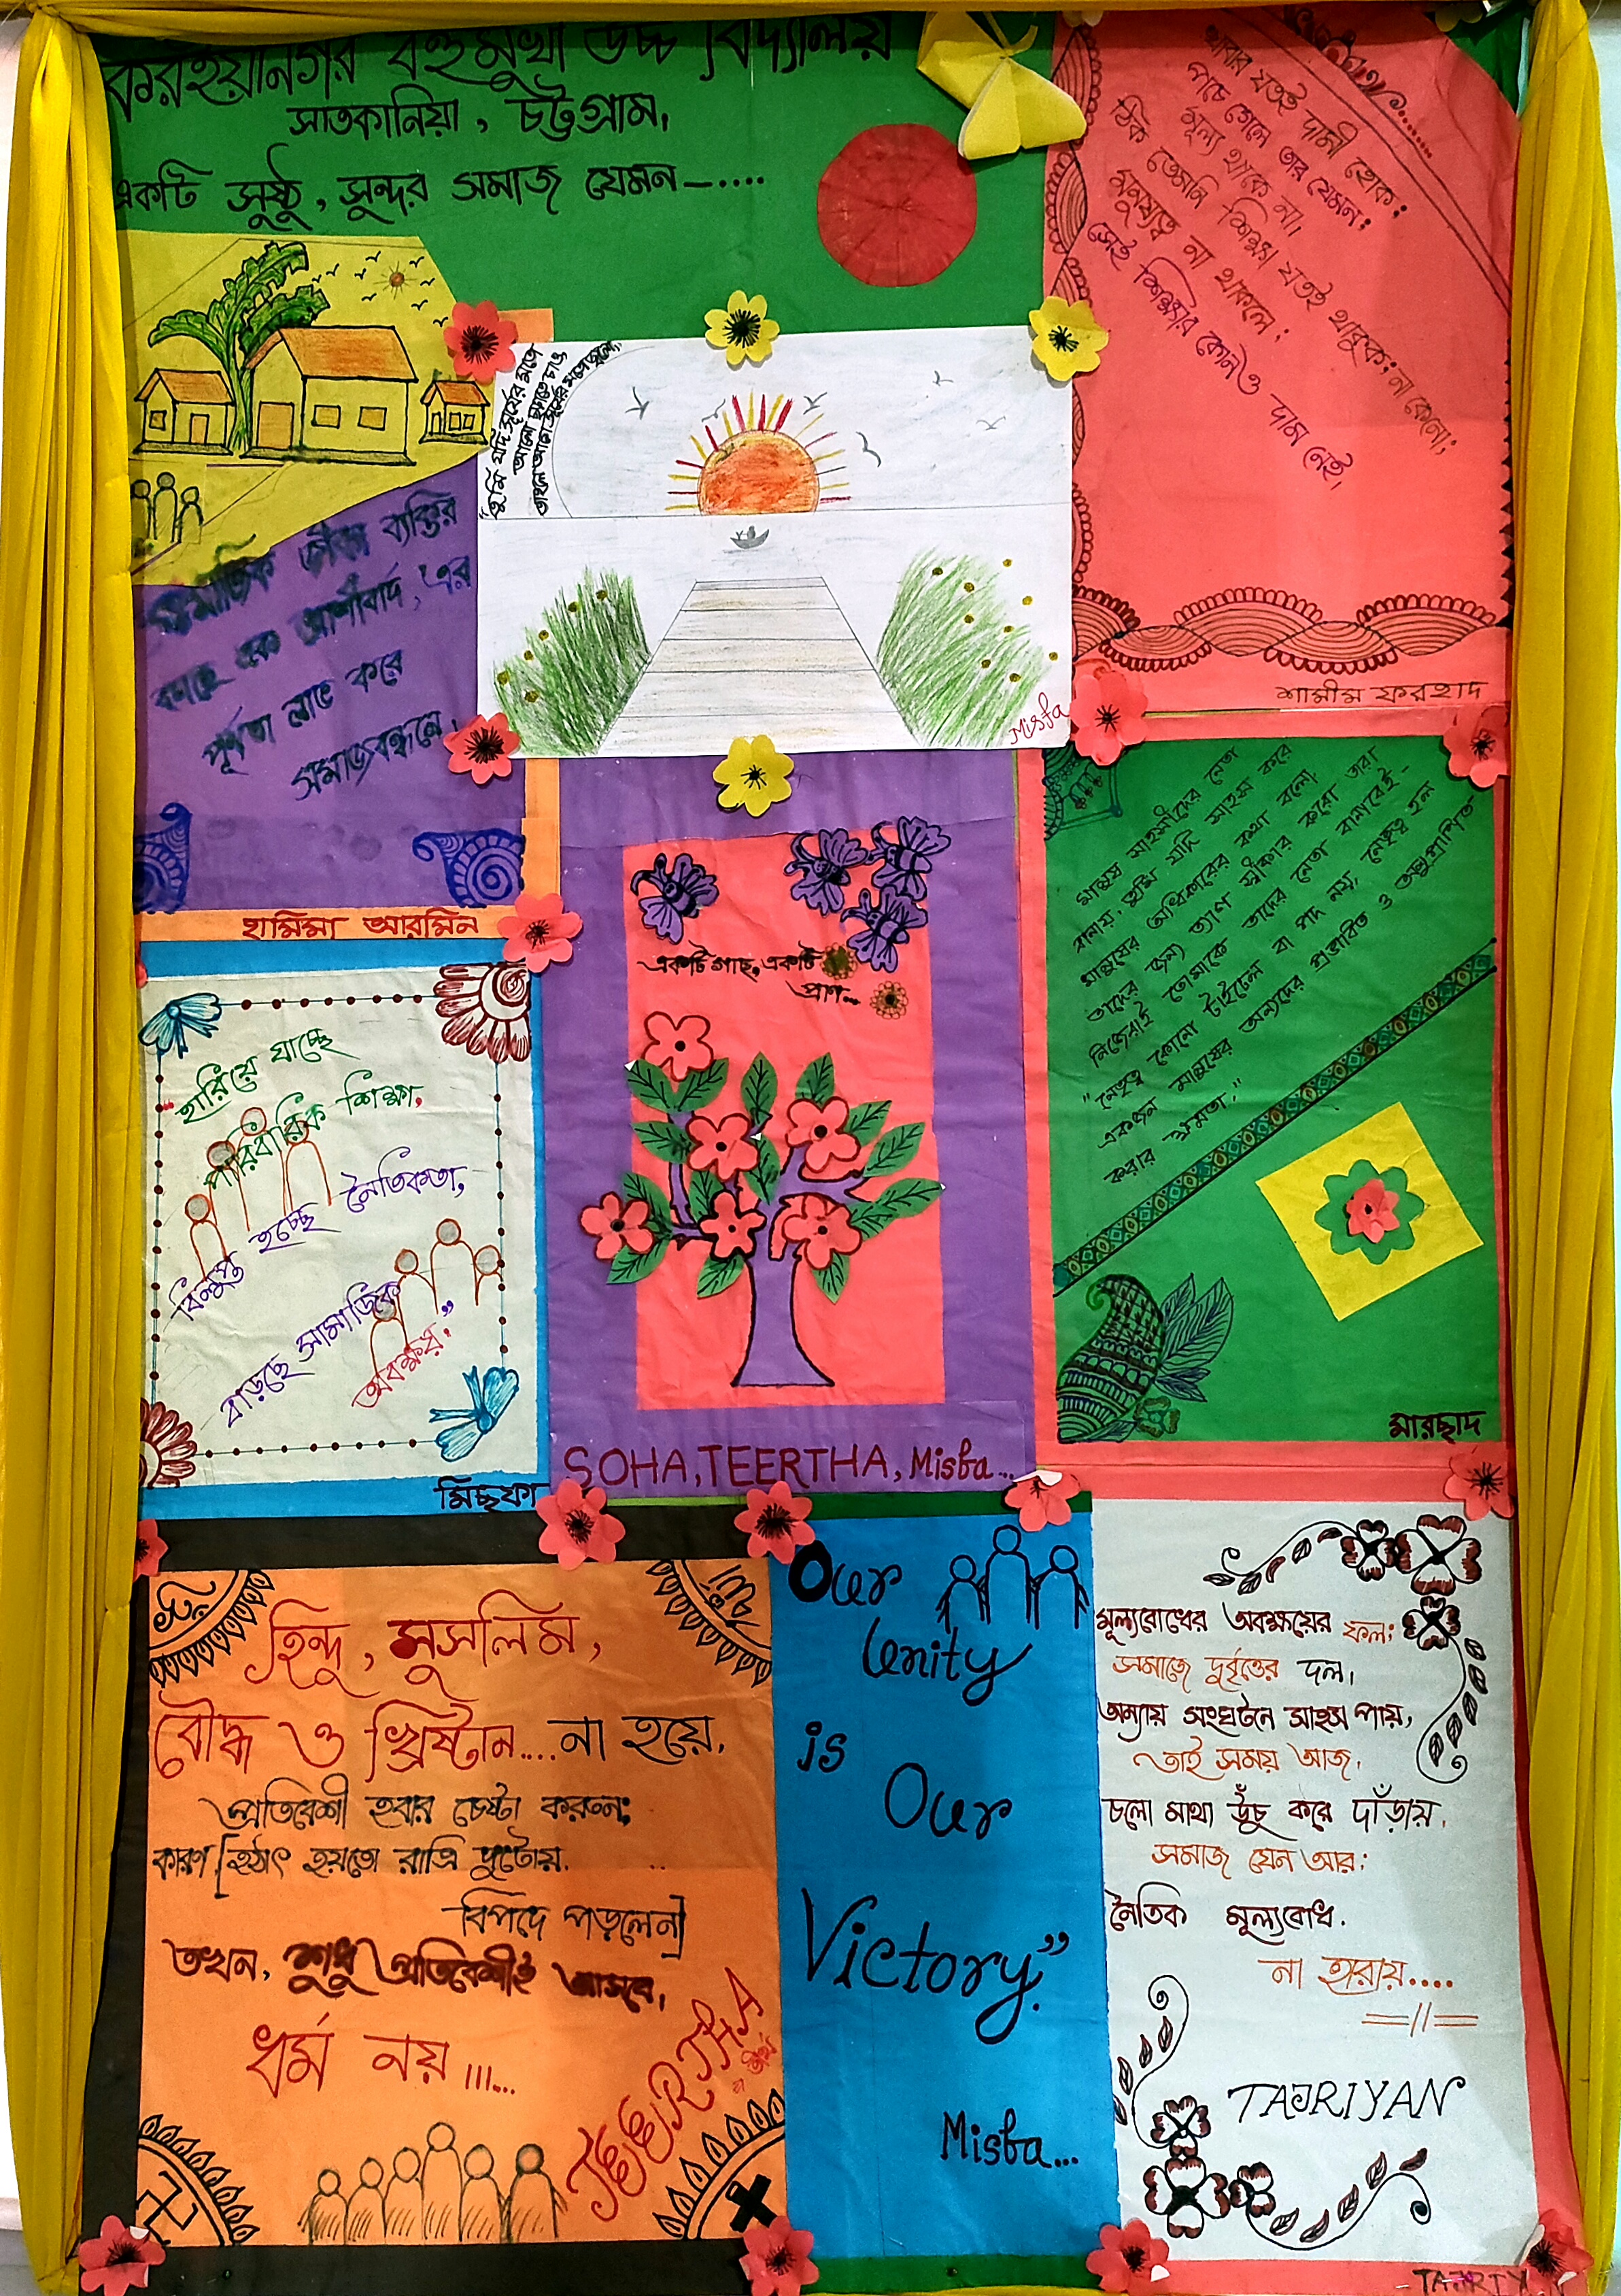 করইয়ানগর বহুমুখী উচ্চ বিদ্যালয়
সাতকানিয়া, চট্টগ্রাম।
একটি সুষ্ঠু, সুন্দর সমাজ যেমন—....
"তুমি যদি সূর্যের মতো
আলো ছড়াতে চাও,
তাহলে আগে সূর্যের মতো
Misfa
খাবার যতই দামী হোক;
পচে গেলে তার যেমন;
মূল্য থাকে না।
ঠিক তেমনি শিক্ষা যতই থাকুক; না কেনো;
মনুষ্যত্ব না থাকলে;
সেই শিক্ষার কোনও দাম নেই।
শামীম ফরহাদ
সামাজিক জীবন ব্যক্তির
কাছে এক আশীর্বাদ, এর
পূর্ণতা লাভ করে
সমাজবন্ধনে।
হামিমা আরমিন
মানুষ সাহসীদের নেতা
বানায়, তুমি যদি সাহস করে
মানুষের অধিকারের কথা বলো,
তাদের জন্য ত্যাগ স্বীকার করো তারা
নিজেরাই তোমাকে তাদের নেতা বানাবেই-
"নেতৃত্ব কোনো টাইটেল বা পদ নয়, নেতৃত্ব হল
একজন মানুষের অন্যদের প্রভাবিত ও অনুপ্রাণিত
করার ক্ষমতা।"
মারছাদ
একটি গাছ, একটি
প্রাণ...
SOHA, TEERTHA, Misba...
"হারিয়ে যাচ্ছে
পারিবারিক শিক্ষা,
বিলুপ্ত হচ্ছে নৈতিকতা,
বাড়ছে সামাজিক
অবক্ষয়।"
মিছফা
হিন্দু, মুসলিম,
বৌদ্ধ ও খ্রিষ্টান....না হয়ে,
প্রতিবেশী হবার চেষ্টা করুন;
কারণ [হঠাৎ হয়তো রাত্রি দুটোয়.
বিপদে পড়লেন]
তখন, শুধু প্রতিবেশীই আসবে,
ধর্ম নয় ।।।...
TEERTHA
Our
Unity
is
Our
Victory."
Misba...
মূল্যবোধের অবক্ষয়ের ফল;
সমাজে দুর্বৃত্তের দল।
অন্যায় সংঘটনে সাহস পায়,
তাই সময় আজ,
চলো মাথা উঁচু করে দাঁড়ায়,
সমাজ যেন আর;
নৈতিক মূল্যবোধ.
না হারায়....
=//=
TAJRIYAN